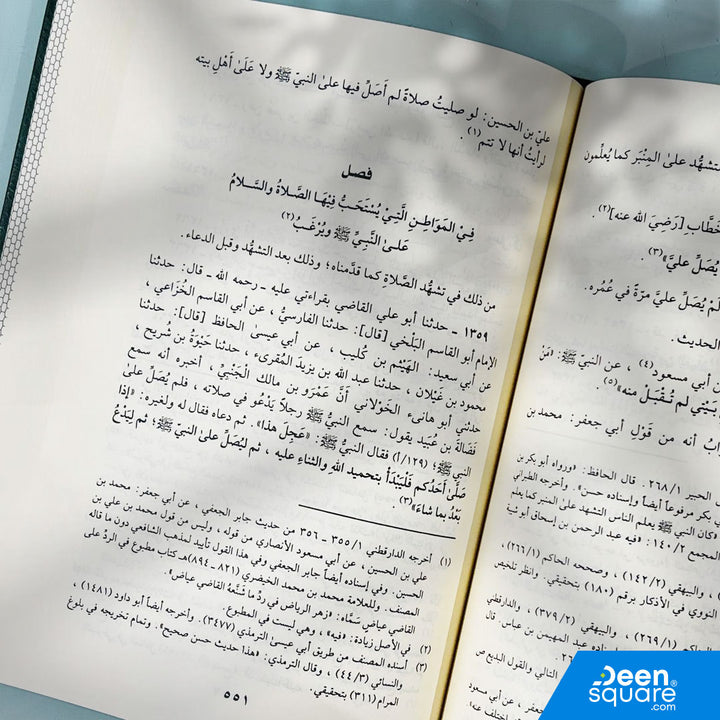 عليّ بن الحسين: لو صليتُ صلاةً لم أصَلِّ فيها على النبيّ ﷺ ولا عَلَىٰ أَهْلِ بيته
لرأيتُ أنها لا تتم(١).
فصل
فِي المَوَاطِنِ الَّتِيْ يُسْتَحَبُّ فِيْهَا الصَّلاةُ والسَّلامُ
عَلىٰ النَّبِيِّ ﷺ ويُرْغَبُ(٢)
من ذلك في تشهُّد الصَّلاةِ كما قدَّمناه؛ وذلك بعد التشهُّد وقبل الدعاء.
١٣٥٩ - حدثنا أبو علي القاضي بقراءتي عليه - رحمه الله - قال: حدثنا
الإمام أبو القاسم البَلْخي [قال]: حدثنا الفارسيُّ، عن أبي القاسم الخُزَاعي،
عن أبي سعيد: الهَيْثم بن كُليب، عن أبي عيسىٰ الحافظ [قال]: حدثنا
محمود بن غَيْلان، حدثنا عبد الله بن يزيدَ المقرىء، حدثنا حَيْوَةُ بن شُريح،
حدثني أبو هانىء الخَوْلاني أنَّ عَمْرَو بن مالك الجَنْبِيَّ، أخبره أنه سمع
فَضَالَةَ بن عُبَيد يقول: سمع النبيُّ ﷺ رجلاً يَدْعُو في صلاته، فلم يُصَلِّ علىٰ
النبي ﷺ؛ (١٢٩/أ) فقال النبيُّ ﷺ: «عَجِلَ هذا». ثم دعاه فقال له ولغيره: «إذا
صَلَّىٰ أَحَدُكم فَلْيَبْدَأْ بتحميد الله والثناءِ عليه، ثم ليُصَلِّ علىٰ النبيّ ﷺ؛ ثم ليَدْعُ
بَعْدُ بما شاءَ»(٣).
(١) أخرجه الدارقطني ٣٥٥/١ - ٣٥٦ من حديث جابر الجعفي، عن أبي جعفر: محمد بن
علي بن الحسين، عن أبي مسعود الأنصاري من قوله، وليس من قول محمد بن علي بن
الحسين. وفي إسناده أيضاً جابر الجعفي وفي هذا القول تأييد لمذهب الشافعي دون ما قاله
المصنف. وللعلامة محمد بن محمد الخيضري (٨٢١-٨٩٤)هـ كتاب مطبوع في الردّ على
القاضي عياض سَمَّاه: «زهر الرياض في ردِّ ما شَنَّعَهُ القاضي عياض».
(٢) في الأصل زيادة: «فيه»، وهي ليست في المطبوع.
(٣) أسنده المصنف من طريق أبي عيسىٰ الترمذي (٣٤٧٧). وأخرجه أيضاً أبو داود (١٤٨١)،
والنسائي (٤٤/٣)، وقال الترمذي: «هذا حديث حسن صحيح». وتمام تخريجه في بلوغ
المرام (٣١١) بتحقيقي.
٥٥١
تشهُّد على المِنْبَر كما يُعلِّمون
خطَّابِ [رَضِيَ الله عنه](٢).
يُصَلِّ عليَّ»(٣).
لَمْ يُصَلِّ عليَّ مرّةً في عُمُره.
الحديث.
ن أبي مسعود(٤)، عن النبيّ ﷺ: «مَنْ
بَيْتِي لم تُقْبَلْ منه»(٥).
وابُ أنه من قَوْلِ أبي جعفر: محمد بن
الحبير ٢٦٨/١. قال الحافظ: «ورواه أبو بكر بن
بكر مرفوعاً أيضاً وإسناده حسن». وأخرجه الطبراني
«كان النبي ﷺ يعلم الناس التشهد على المنبر كما يعلم
المجمع ١٤٠/٢: «فيه عبد الرحمن بن إسحاق أبو شيبة
، والبيهقي (١٤٢/٢)، وصححه الحاكم (٢٦٦/١)،
النووي في الأذكار برقم (١٨٠) بتحقيقي. وانظر تلخيص
(٢٦٩/١)، والبيهقي (٣٧٩/٢)، والدارقطني
ده عبد المهيمن بن عباس. قال
التالي والقول البديع ص
، عن أبي مسعود
Deen
square®
.com